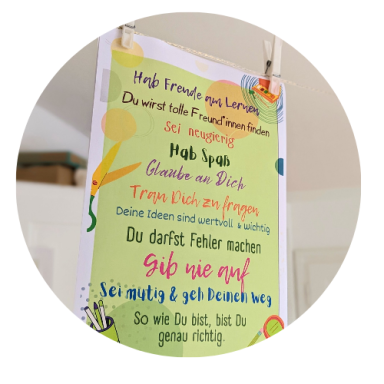 Hab Freude am Lernen
Du wirst tolle Freund*innen finden
Sei neugierig
Hab Spaß
Glaube an Dich
Trau Dich zu fragen
Deine Ideen sind wertvoll & wichtig
Du darfst Fehler machen
Gib nie auf
Sei mutig & geh Deinen Weg
So wie Du bist, bist Du
genau richtig.